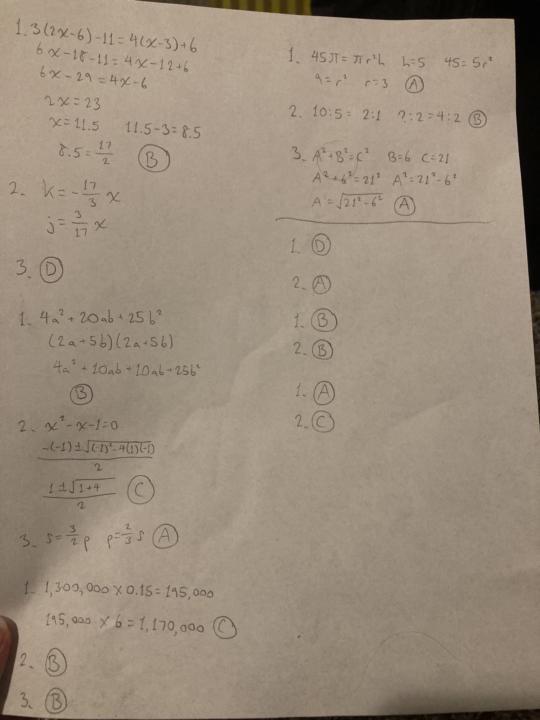 1. 3(2x-6)-11=4(x-3)+6
6x-18-11=4x-12+6
6x-29=4x-6
2x=23
x=11.5 11.5-3=8.5
8.5=17/2 (B)
2. k=-17/3 x
j=3/17 x
3. (D)
1. 4a²+20ab+25b²
(2a+5b)(2a+5b)
4a²+10ab+10ab+25b²
(B)
2. x²-x-1=0
-(-1)±√((-1)²-4(1)(-1))/2
1±√(1+4)/2 (C)
3. s=3/2 p p=2/3 s (A)
1. 1,300,000×0.15=195,000
195,000×6=1,170,000 (C)
2. (B)
3. (B)
1. 45π=πr²h h=5 45=5r²
9=r² r=3 (A)
2. 10:5=2:1 ?:2=4:2 (B)
3. A²+B²=C² B=6 C=21
A²+6²=21² A²=21²-6²
A=√(21²-6²) (A)
1. (D)
2. (A)
1. (B)
2. (B)
1. (A)
2. (C)